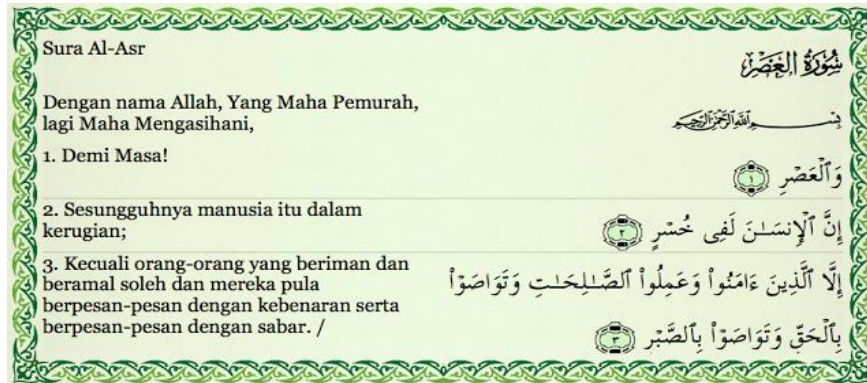 Sura Al-Asr
سُورَةُ العَصْرِ
Dengan nama Allah, Yang Maha Pemurah,
lagi Maha Mengasihani,
بِسْمِ ٱللَّهِ ٱلرَّحْمَٰنِ ٱلرَّحِيمِ
1. Demi Masa!
وَٱلْعَصْرِ ١
2. Sesungguhnya manusia itu dalam
kerugian;
إِنَّ ٱلْإِنسَـٰنَ لَفِى خُسْرٍ ٢
3. Kecuali orang-orang yang beriman dan
beramal soleh dan mereka pula
berpesan-pesan dengan kebenaran serta
berpesan-pesan dengan sabar. /
إِلَّا ٱلَّذِينَ ءَامَنُوا۟ وَعَمِلُوا۟ ٱلصَّـٰلِحَـٰتِ وَتَوَاصَوْا۟
بِٱلْحَقِّ وَتَوَاصَوْا۟ بِٱلصَّبْرِ ٣